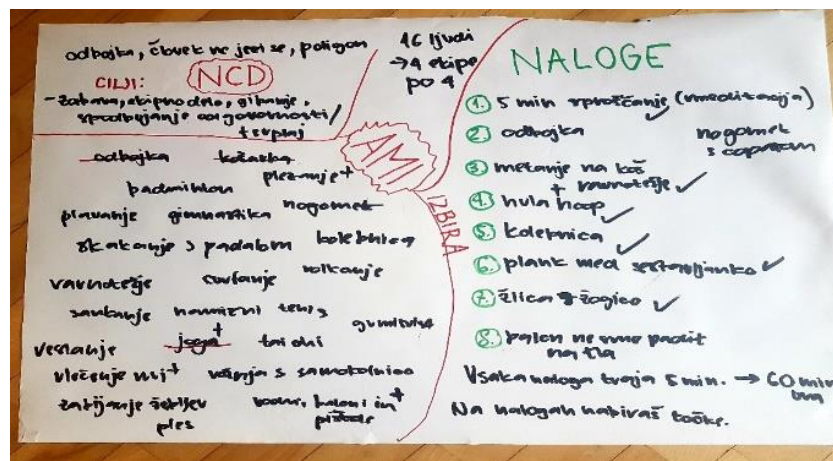 odbojka, človek ne jezi se, poligon
CILJI:
NCD
- zabava, ekipno delo, gibanje,
spodbujanje odgovornosti/
46 ljudi
→ 4 ekipe
po 4
AMI
IZBIRA
odbojka košarka
badminton plezanje+
plavanje gimnastika nogomet
skakanje s padalom kolebnica
ravnotežje surfanje rolkanje
sankanje namizni tenis
gumitvist
veslanje joga+ tai chi
vlečenje vrvi+ vožnja s samokolnico
zabijanje žebljev vodni baloni in+
ples pištole
NALOGE
1. 5 min sproščanje (meditacija)
2. odbojka
nogomet
s copatom
3. metanje na koš
+ ravnotežje
4. hula hoop
5. kolebnica
6. plank med sestavljanko
7. žlica z žogico
8. balon ne sme padit
na tla
Vsaka naloga traja 5 min. → 60 min
Na nalogah nabiraš točke.